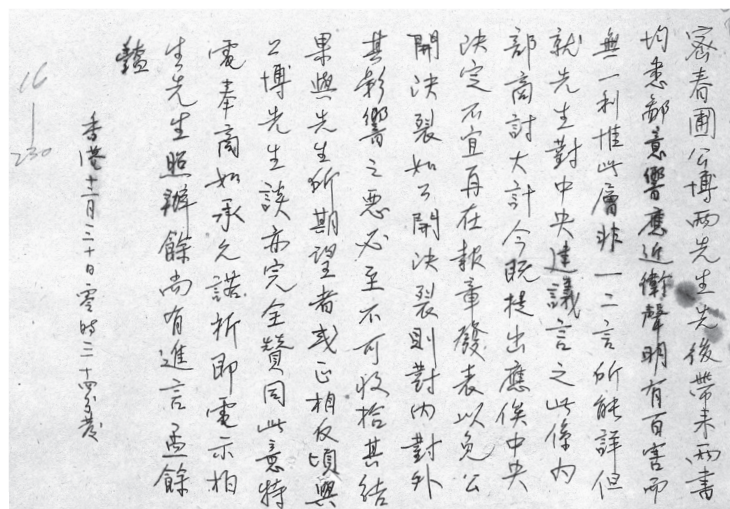 密春圃公博兩先生先後帶來兩書
均悉鄙意響應近衛聲明有百害而
無一利惟此層非一二言所能詳但
就先生對中央建議言之此係內
部商討大計今既提出應俟中央
決定不宜再在報章發表以免公
開決裂如公開決裂則對內對外
其影響之惡必至不可收拾其結
果與先生所期望者或正相反頃與
公博先生談亦完全贊同此意特
電奉商如承允諾祈即電示柏
生先生照辦餘尚有進言孟餘
香港十二月三十日零時三十四分發
16
230